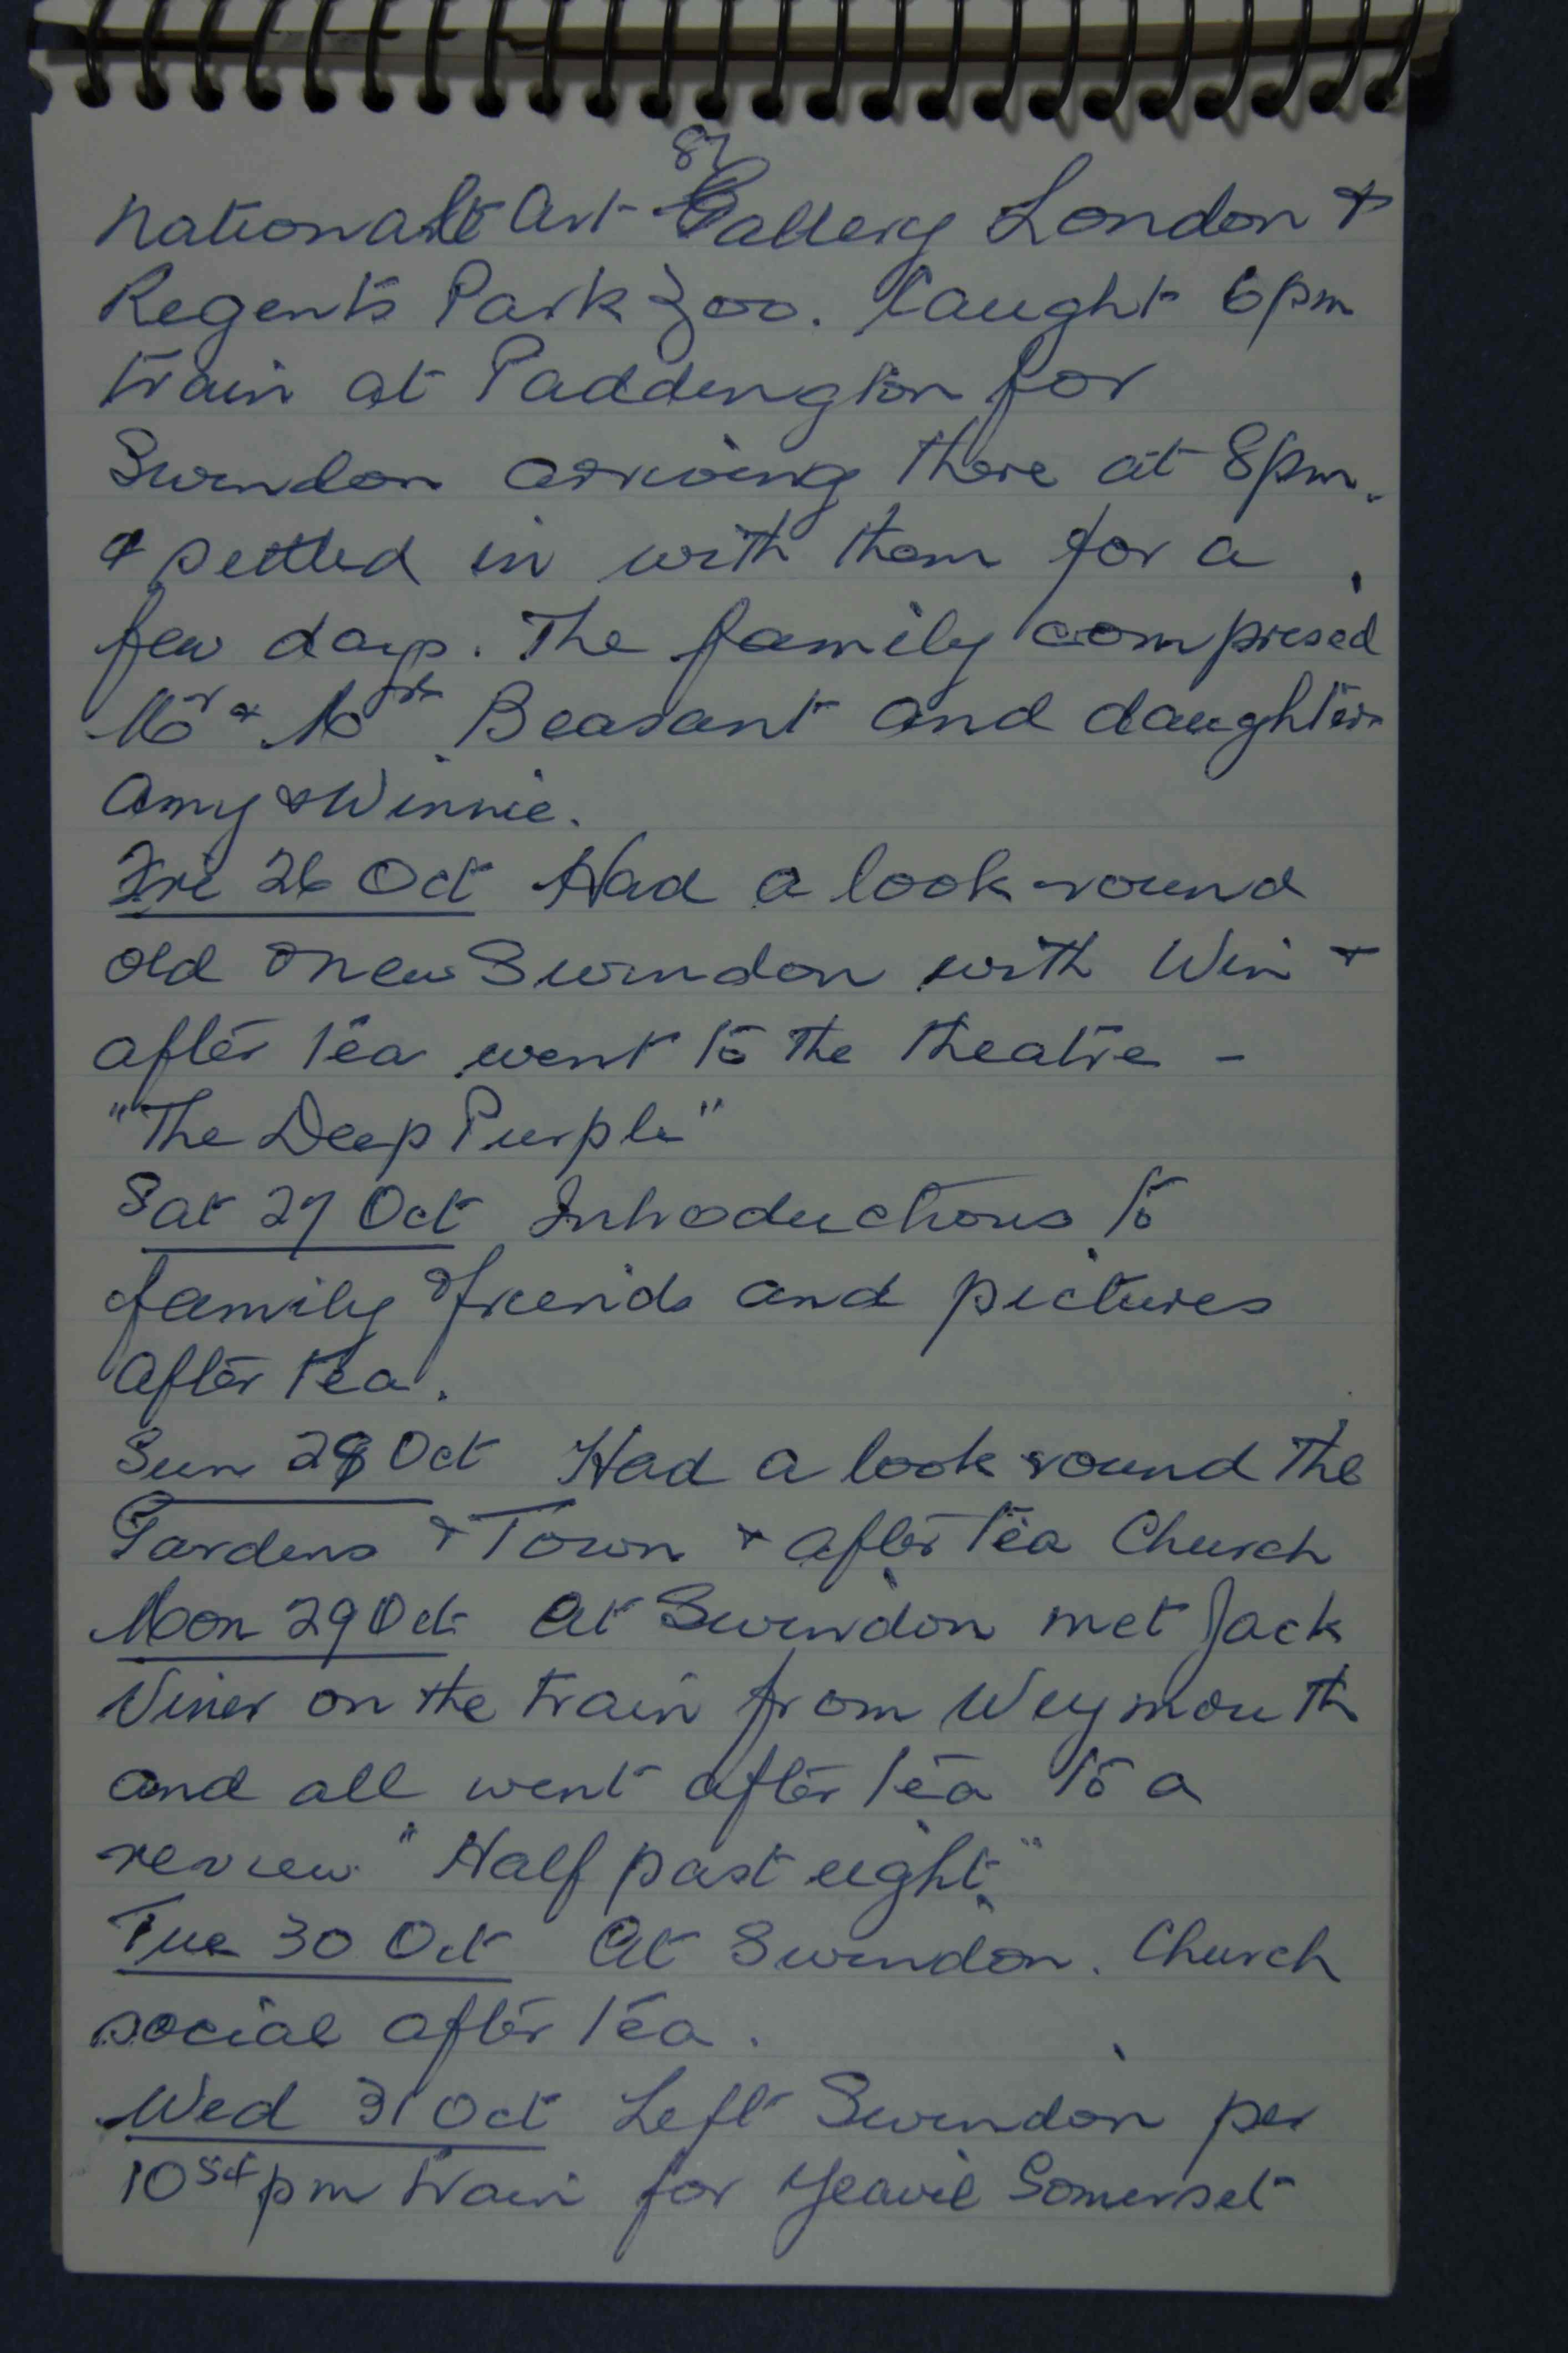 87
National Art Gallery London &
Regents Park Zoo. Caught 6pm
train at Paddington for
Swindon arriving there at 8pm.
& settled in with them for a
few days. The family comprised
Mr & Mrs Beasant and daughters
Amy & Winnie.
Fri 26 Oct Had a look round
old & new Swindon with Win &
after tea went to the theatre -
"The Deep Purple"
Sat 27 Oct Introductions to
family & friends and pictures
after tea.
Sun 28 Oct Had a look round the
Gardens & Town & after tea Church
Mon 29 Oct At Swindon met Jack
Viner on the train from Weymouth
and all went after tea to a
review "Half past eight."
Tue 30 Oct At Swindon. Church
social after tea.
Wed 31 Oct Left Swindon per
10 54 pm train for Yeavil Somerset